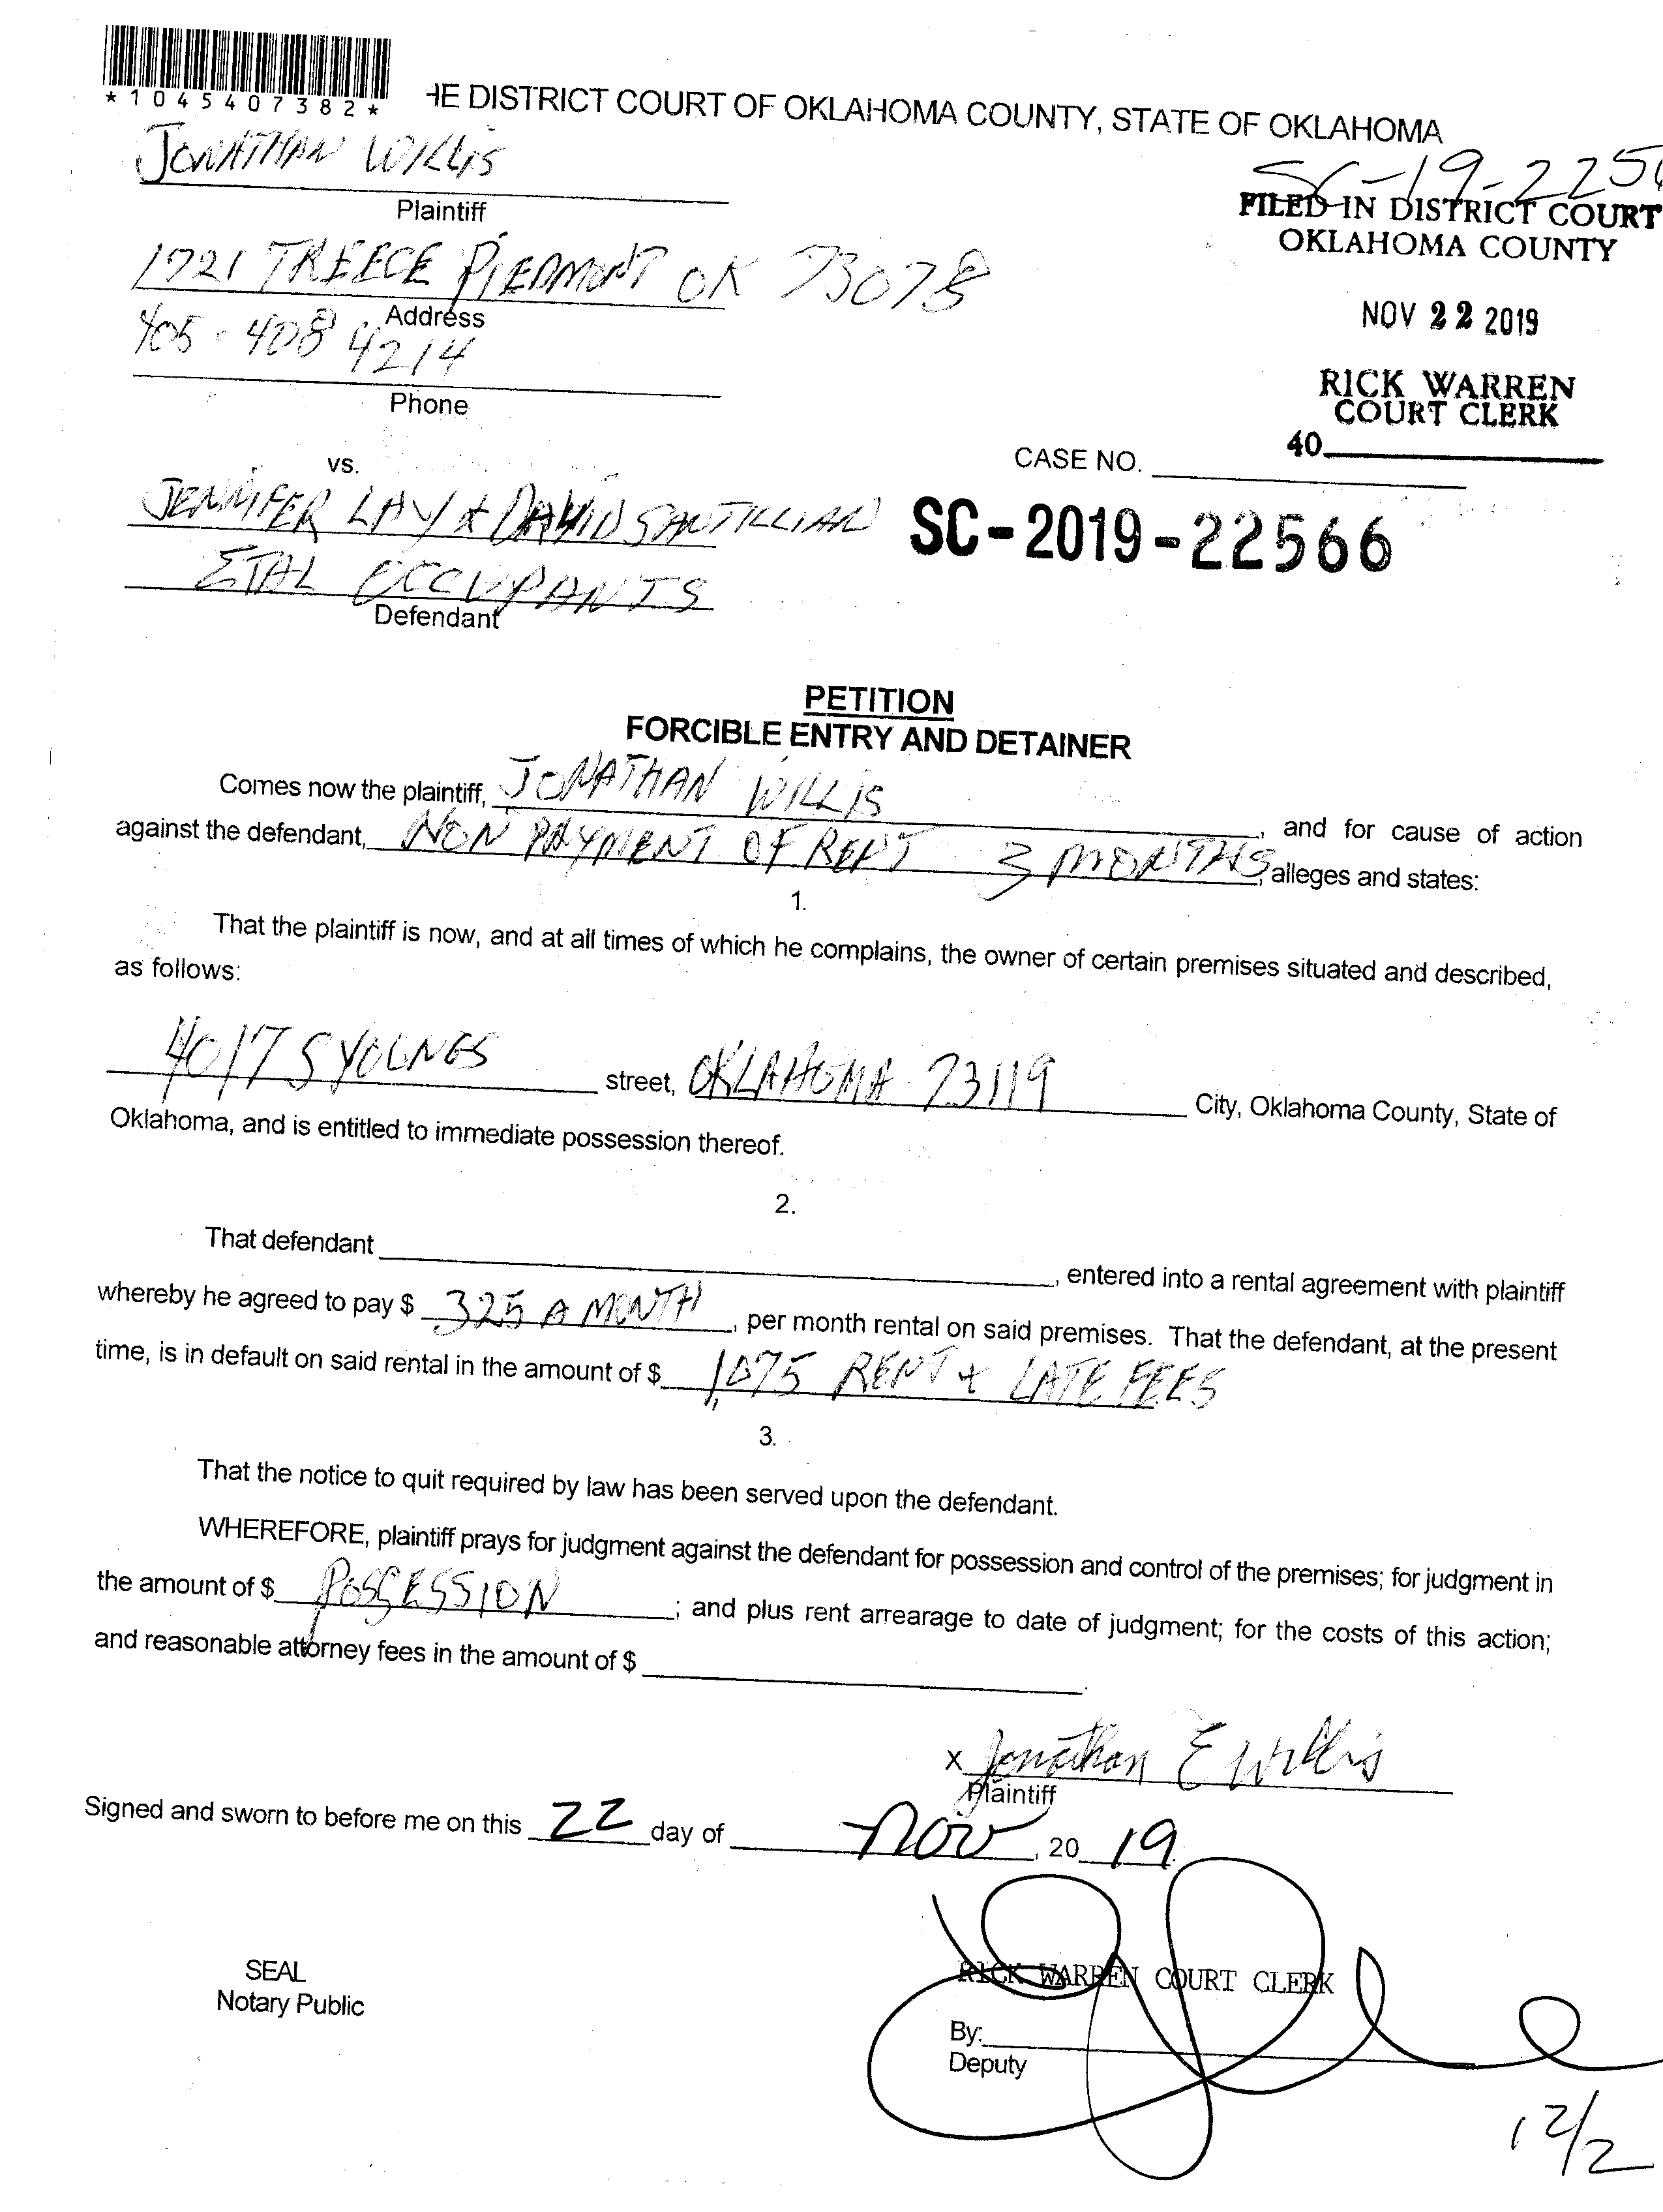 *1045407382*
HE DISTRICT COURT OF OKLAHOMA COUNTY, STATE OF OKLAHOMA
JONATHAN WILLIS
Plaintiff
SC-19-2256
FILED IN DISTRICT COURT
OKLAHOMA COUNTY
1721 TREECE PIEDMONT OK 73078
Address
NOV 22 2019
405-408 4214
Phone
RICK WARREN
COURT CLERK
40
vs.
CASE NO.
JENNIFER LAY & DAVID SANTILLIAN
SC-2019-22566
ETAL OCCUPANTS
Defendant
PETITION
FORCIBLE ENTRY AND DETAINER
Comes now the plaintiff, JONATHAN WILLIS, and for cause of action
against the defendant, NON PAYMENT OF RENT 3 MONTHS, alleges and states:
1.
That the plaintiff is now, and at all times of which he complains, the owner of certain premises situated and described,
as follows:
4017 S YOUNGS street, OKLAHOMA 73119 City, Oklahoma County, State of
Oklahoma, and is entitled to immediate possession thereof.
2.
That defendant , entered into a rental agreement with plaintiff
whereby he agreed to pay $ 325 A MONTH, per month rental on said premises. That the defendant, at the present
time, is in default on said rental in the amount of $ 1,075 RENT & LATE FEES
3.
That the notice to quit required by law has been served upon the defendant.
WHEREFORE, plaintiff prays for judgment against the defendant for possession and control of the premises; for judgment in
the amount of $ POSSESSION; and plus rent arrearage to date of judgment; for the costs of this action;
and reasonable attorney fees in the amount of $ .
x Jonathan E Willis
Plaintiff
Signed and sworn to before me on this 22 day of Nov, 20 19.
SEAL
Notary Public
RICK WARREN COURT CLERK
By:
Deputy
12/2